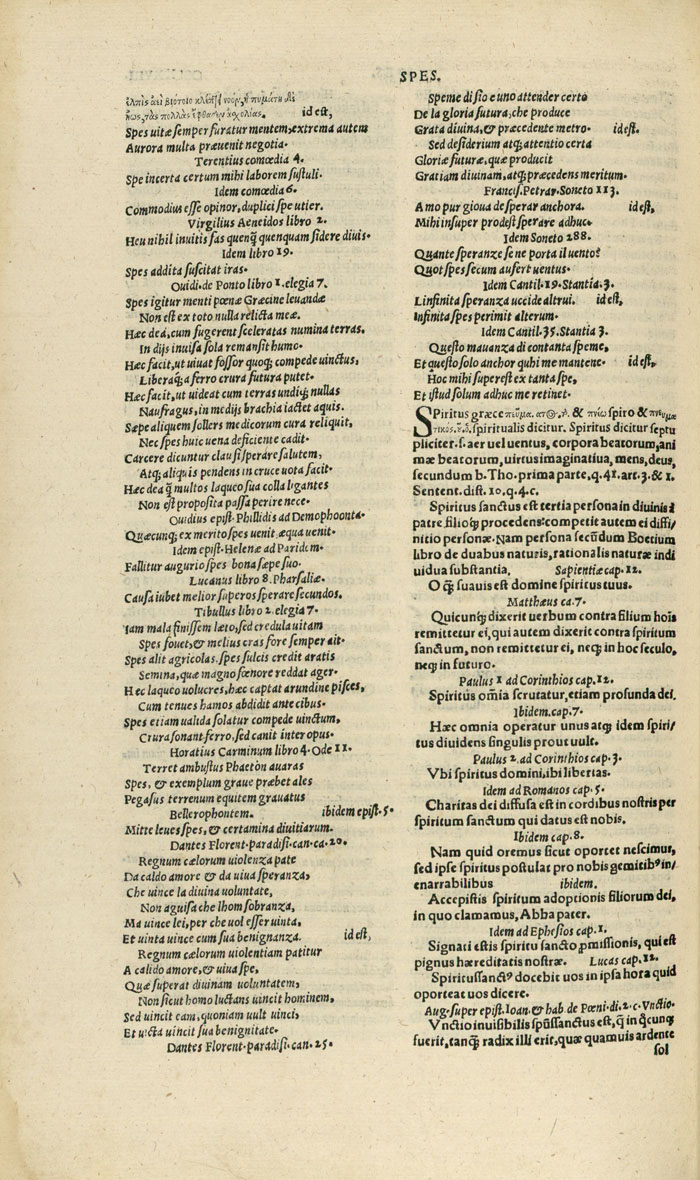 SPES.
id est,
Spes uitæ semper furatur mentem, extrema autem
Aurora multa præuenit negotia.
Terentius comœdia 4.
Spe incerta certum mihi laborem sustuli.
Idem comœdia 6.
Commodius esse opinor, duplici spe utier.
Virgilius Aeneidos libro 2.
Heu nihil inuitis fas quenq̃ quenquam fidere diuis.
Idem libro 19.
Spes addita suscitat iras.
Ouidi. de Ponto libro 1. elegia 7.
Spes igitur menti pœnæ Græcine leuandæ
Non est ex toto nulla relicta meæ.
Hæc dea, cum fugerent sceleratas numina terras.
In dijs inuisa sola remansit humo.
Hæc facit, ut uiuat fossor quoq; compede uinctus,
Liberaq; a ferro crura futura putet.
Hæc facit, ut uideat cum terras undiq; nullas
Naufragus, in medijs brachia iactet aquis.
Sæpe aliquem sollers medicorum cura reliquit,
Nec spes huic uena deficiente cadit.
Carcere dicuntur clausi sperare salutem,
Atq; aliquis pendens in cruce uota facit.
Hæc dea q̃ multos laqueo sua colla ligantes
Non est proposita passa perire nece.
Ouidius epist. Phillidis ad Demophoonta.
Quæcunq; ex merito spes uenit, æqua uenit.
Idem epist. Helenæ ad Paridem.
Fallitur augurio spes bona sæpe suo.
Lucanus libro 8. Pharsaliæ.
Causa iubet melior superos sperare secundos.
Tibullus libro 2. elegia 7.
Iam mala finissem læto, sed credula uitam
Spes fouet, & melius cras fore semper ait.
Spes alit agricolas. spes sulcis credit aratis
Semina, quæ magno fœnore reddat ager.
Hec laqueo uolucres, hæc captat arundine pisces,
Cum tenues hamos abdidit ante cibus.
Spes etiam ualida solatur compede uinctum,
Crura sonant ferro, sed canit inter opus.
Horatius Carminum libro 4. Ode 11.
Terret ambustus Phaeton auaras
Spes, & exemplum graue præbet ales
Pegasus terrenum equitem grauatus
Bellerophontem. ibidem epist. 5.
Mitte leues spes, & certamina diuitiarum.
Dantes Florent. paradisi. can. ca. 20.
Regnum cælorum uiolenza pate
Da caldo amore & da uiua speranza,
Che uince la diuina uoluntate,
Non a guisa che lhom sobranza,
Ma uince lei, per che uol esser uinta,
Et uinta uince cum sua benignanza. id est,
Regnum cælorum uiolentiam patitur
A calido amore, & uiua spe,
Quæ superat diuinam uoluntatem,
Non sicut homo luctans uincit hominem,
Sed uincit eam, quoniam uult uinci,
Et uicta uincit sua benignitate.
Dantes Florent. paradisi. can. 25.
Speme di sio e uno attender certo
De la gloria futura, che produce
Grata diuina, & præcedente metro. id est.
Sed desiderium atq; attentio certa
Gloriæ futuræ, quæ producit
Gratiam diuinam, atq; præcedens meritum.
Francis. Petrar. Soneto 113.
A mo pur gioua de sperar anchora. id est,
Mihi insuper prodest sperare adhuc.
Idem Soneto 288.
Quante speranze se ne porta il uento?
Quot spes secum aufert uentus.
Idem Cantil. 19. Stantia. 3.
Linfinita speranza uccide altrui. id est,
Infinita spes perimit alterum.
Idem Cantil. 35. Stantia 3.
Questo mauanza di contanta speme,
Et questo solo anchor quhi me mantene. id est,
Hoc mihi superest ex tanta spe,
Et istud solum adhuc me retinet.
Spiritus græce & spiro &
spiritualis dicitur. Spiritus dicitur septu
pliciter. s. aer uel uentus, corpora beatorum, ani
mæ beatorum, uirtus imaginatiua, mens, deus,
secundum b. Tho. prima parte, q. 41. art. 3. & 1.
Sentent. dist. 10. q. 4. c.
Spiritus sanctus est tertia persona in diuinis à
patre filioq; procedens: competit autem ei diffi/
nitio personæ. Nam persona secūdum Boetium
libro de duabus naturis, rationalis naturæ indi
uidua substantia. Sapientiæ cap. 12.
O q̃ suauis est domine spiritus tuus.
Matthæus ca. 7.
Quicunq; dixerit uerbum contra filium hoīs
remittetur ei, qui autem dixerit contra spiritum
sanctum, non remittetur ei, neq; in hoc seculo,
neq; in futuro.
Paulus 1 ad Corinthios cap. 12.
Spiritus om̄ia scrutatur, etiam profunda dei.
Ibidem. cap. 7.
Hæc omnia operatur unus atq; idem spiri/
tus diuidens singulis prout uult.
Paulus 2. ad Corinthios cap. 3.
Vbi spiritus domini, ibi libertas.
Idem ad Romanos cap. 5.
Charitas dei diffusa est in cordibus nostris per
spiritum sanctum qui datus est nobis.
Ibidem cap. 8.
Nam quid oremus sicut oportet nescimus,
sed ipse spiritus postulat pro nobis gemitibꝰ in/
enarrabilibus ibidem.
Accepistis spiritum adoptionis filiorum dei,
in quo clamamus, Abba pater.
Idem ad Ephesios cap. 1.
Signati estis spiritu sancto ꝓmissionis, qui est
pignus hæreditatis nostræ. Lucas cap. 12.
Spiritussanctꝰ docebit uos in ipsa hora quid
oporteat uos dicere.
Aug. super epist. Ioan. & hab de Pœni. di. 2. c. Vnctio.
Vnctio inuisibilis spūssanctus est, q̃ in q̃cunq;
fuerit, tanq̃ radix illi erit, quæ quamuis ardente
sol